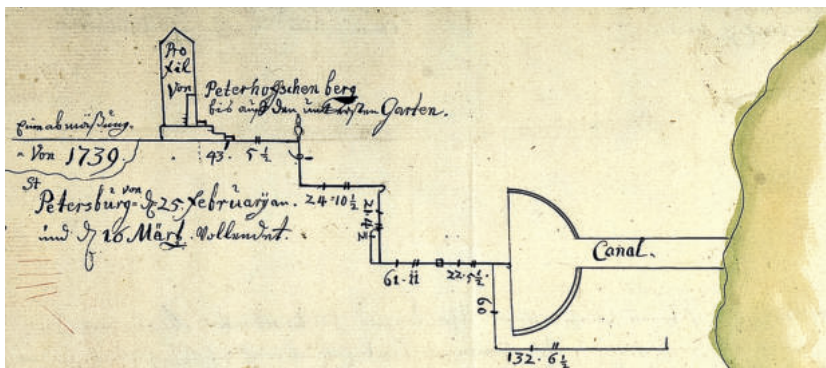 Pro
fil
Von
Peterhoffschen berg
bis auff den untersten Garten.
Eine abmäßung.
Von 1739.
43. 5 1/2
St
Petersburg von d. 25. Februarÿ an.
und d. 16 März. Vollendet.
24. 10 1/2
21. 4 1/2
61. 11
22. 5 1/2.
60
Canal.
132. 6 1/2